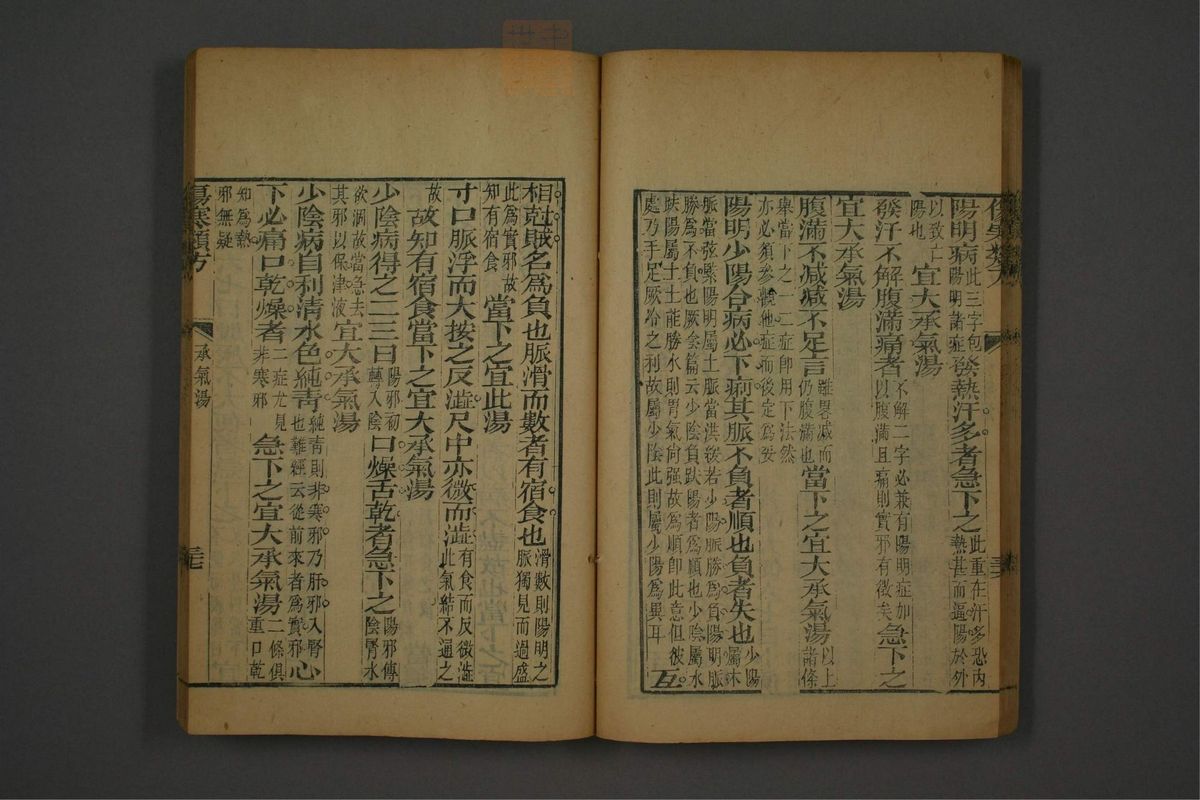 陽明病此三字包陽明諸症發熱汗多者急下之此重在汗多恐內熱甚而逼陽於外
以致亡陽也宜大承氣湯
發汗不解腹滿痛者不解二字必兼有陽明症加以腹滿且痛則實邪有徵矣急下之
宜大承氣湯
腹滿不减减不足言雖畧减而仍腹滿也當下之宜大承氣湯以上諸條
舉當下之一二症卽用下法然亦必須參觀他症而後定爲妥
陽明少陽合病必下痢其脈不負者順也負者失也少陽屬木
脈當弦緊陽明屬土脈當洪緩若少陽脈勝爲負陽明脈
勝爲不負也厥陰篇云少陰負趺陽者爲順也少陰屬水
趺陽屬土土能勝水則胃氣尚强故爲順卽此意但彼
處乃手足厥冷之利故屬少陰此則屬少陽爲異耳互
相尅賊名爲負也脈滑而數者有宿食也滑數則陽明之脈獨見而過盛
此爲實邪故知有宿食當下之宜此湯
寸口脈浮而大按之反澁尺中亦微而澁有食而反微澁此氣結不通之
故故知有宿食當下之宜大承氣湯
少陰病得之二三日陽邪初轉入陰口燥舌乾者急下之陽邪傳陰腎水
欲涸故當急去其邪以保津液宜大承氣湯
少陰病自利清水色純青純青則非寒邪乃肝邪入腎也難經云從前來者爲實邪心
下必痛口乾燥者二症尤見非寒邪急下之宜大承氣湯二條俱重口乾
知爲熱邪無疑
傷寒類方
承氣湯
三七